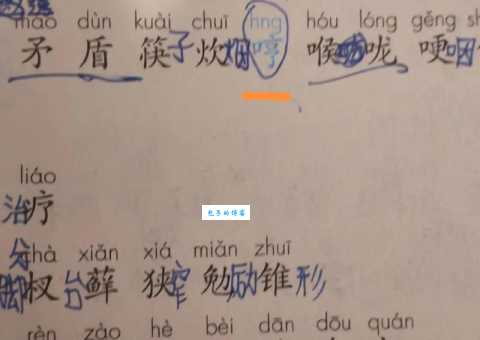 máo dùn kuài chuī hng hóu lóng gěng
矛盾筷子炊烟哼喉咙哽咽
liáo
治疗
包子的博客
chà xiǎn xiá miǎn zhuī
杈苔藓狭窄勉励锥形
rèn zào hè bèi dān dōu quán